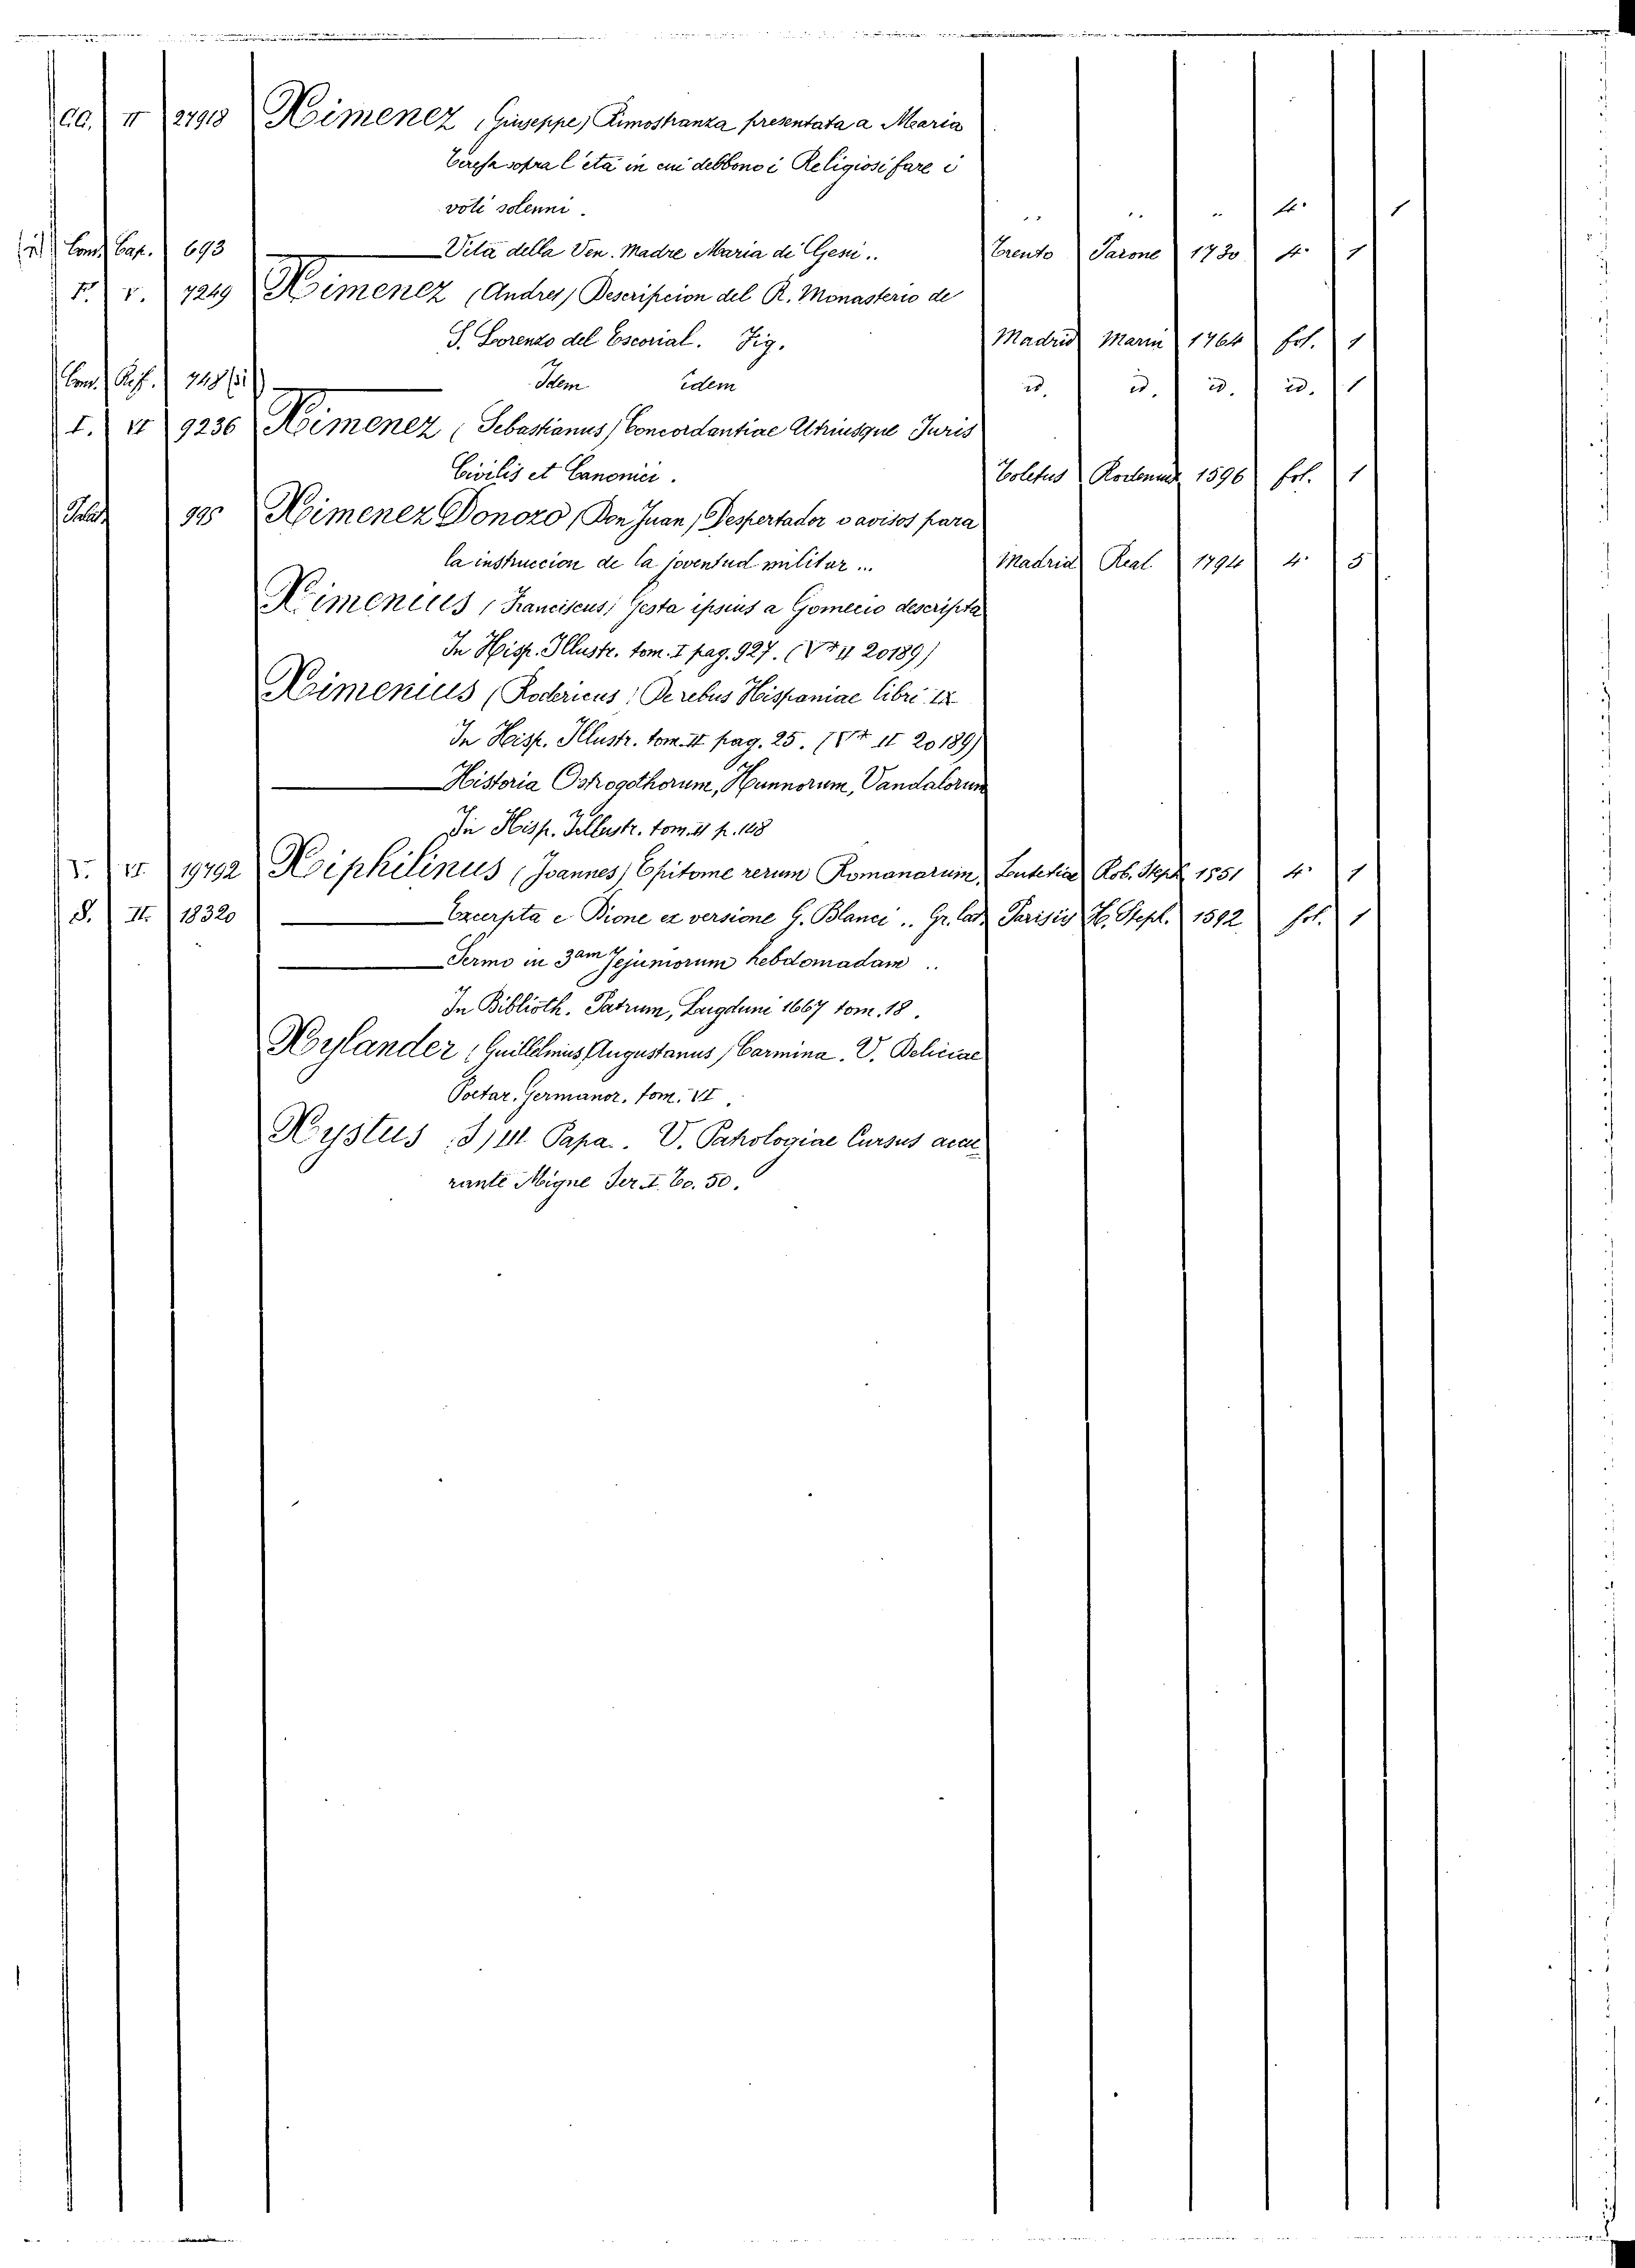 CC. II 27918 Ximenez (Giuseppe) Rimostranza presentata a Maria
Teresa sopra l'età in cui debbono i Religiosi fare i
voti solenni. " " " 4. 1
Cons. Cap. 693 — Vita della Ven. Madre Maria di Gesù.. Trento Parone 1730 4. 1
F. V. 7249 Ximenez (Andres) Descripcion del R. Monasterio de
S. Lorenzo del Escorial. Fig. Madrid Marin 1764 fol. 1
Cons. Ref. 748 Idem idem id. id. id. id. 1
I. VI 9236 Ximenez (Sebastianus) Concordantiae Utriusque Juris
Civilis et Canonici. Toletus 1596 fol. 1
995 Ximenez Donozo (Don Juan) Despertador o avisos para
la instruccion de la joventud militar ... Madrid Real 1794 4. 5
Ximenius (Franciscus) Gesta ipsius a Gomecio descripta
In Hisp. Illustr. tom. I pag. 927. 20189)
Ximenius (Rodericus) De rebus Hispaniae libri IX
In Hisp. Illustr. tom. II pag. 25. 20189)
— Historia Ostrogothorum, Hunnorum, Vandalorum
In Hisp. Illustr. tom. II p. 148
V. VI. 19792 Xiphilinus (Joannes) Epitome rerum Romanarum. Lutetiae Rob. Steph. 1551 4. 1
S. II. 18320 — Excerpta e Dione ex versione G. Blanci .. Gr. lat. Parisiis H. Steph. 1592 fol. 1
— Sermo in 3am Jejuniorum hebdomadam ..
In Biblioth. Patrum, Lugduni 1667 tom. 18.
Xylander (Guillelmus Augustanus) Carmina. V. Deliciae
Poetar. Germanor. tom. VI.
Xystus (S) III Papa. V. Patrologiae Cursus accu
rante Migne Ser. I. To. 50.